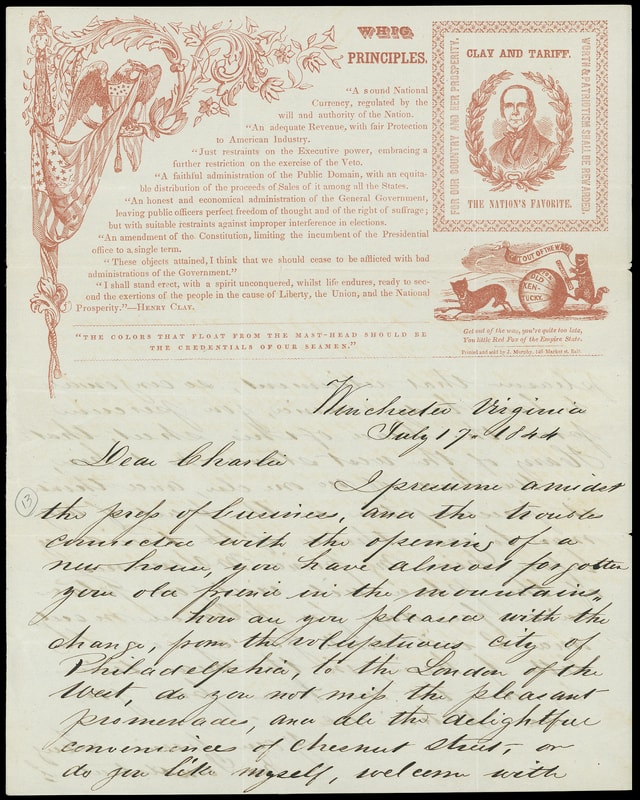 WHIG
PRINCIPLES.
"A sound National
Currency, regulated by the
will and authority of the Nation.
"An adequate Revenue, with fair Protection
to American Industry.
"Just restraints on the Executive power, embracing a
further restriction on the exercise of the Veto.
"A faithful administration of the Public Domain, with an equita-
ble distribution of the proceeds of Sales of it among all the States.
"An honest and economical administration of the General Government,
leaving public officers perfect freedom of thought and of the right of suffrage;
but with suitable restraints against improper interference in elections.
"An amendment of the Constitution, limiting the incumbent of the Presidential
office to a single term.
"These objects attained, I think that we should cease to be afflicted with bad
administrations of the Government."
"I shall stand erect, with a spirit unconquered, whilst life endures, ready to sec-
ond the exertions of the people in the cause of Liberty, the Union, and the National
Prosperity."—HENRY CLAY.
"THE COLORS THAT FLOAT FROM THE MAST-HEAD SHOULD BE
THE CREDENTIALS OF OUR SEAMEN."
FOR OUR COUNTRY AND HER PROSPERITY.
CLAY AND TARIFF.
THE NATION'S FAVORITE.
WORTH & PATRIOTISM SHALL BE REWARDED.
OUT OF THE WAY
OLD
KEN-
TUCKY.
Get out of the way, you're quite too late,
You little Red Fox of the Empire State.
Printed and sold by J. Murphy, 146 Market st. Balt.
Winchester Virginia
July 17. 1844
Dear Charlie
I presume amidst
13
the press of business, and the trouble
connected with the opening of a
new house, you have almost forgotten
your old friend in the mountains,
how are you pleased with the
change, from the voluptuous city of
Philadelphia, to the London of the
West, do you not miss the pleasant
promenades, and all the delightful
conveniences of Chesnut street, or
do you like myself, welcome with